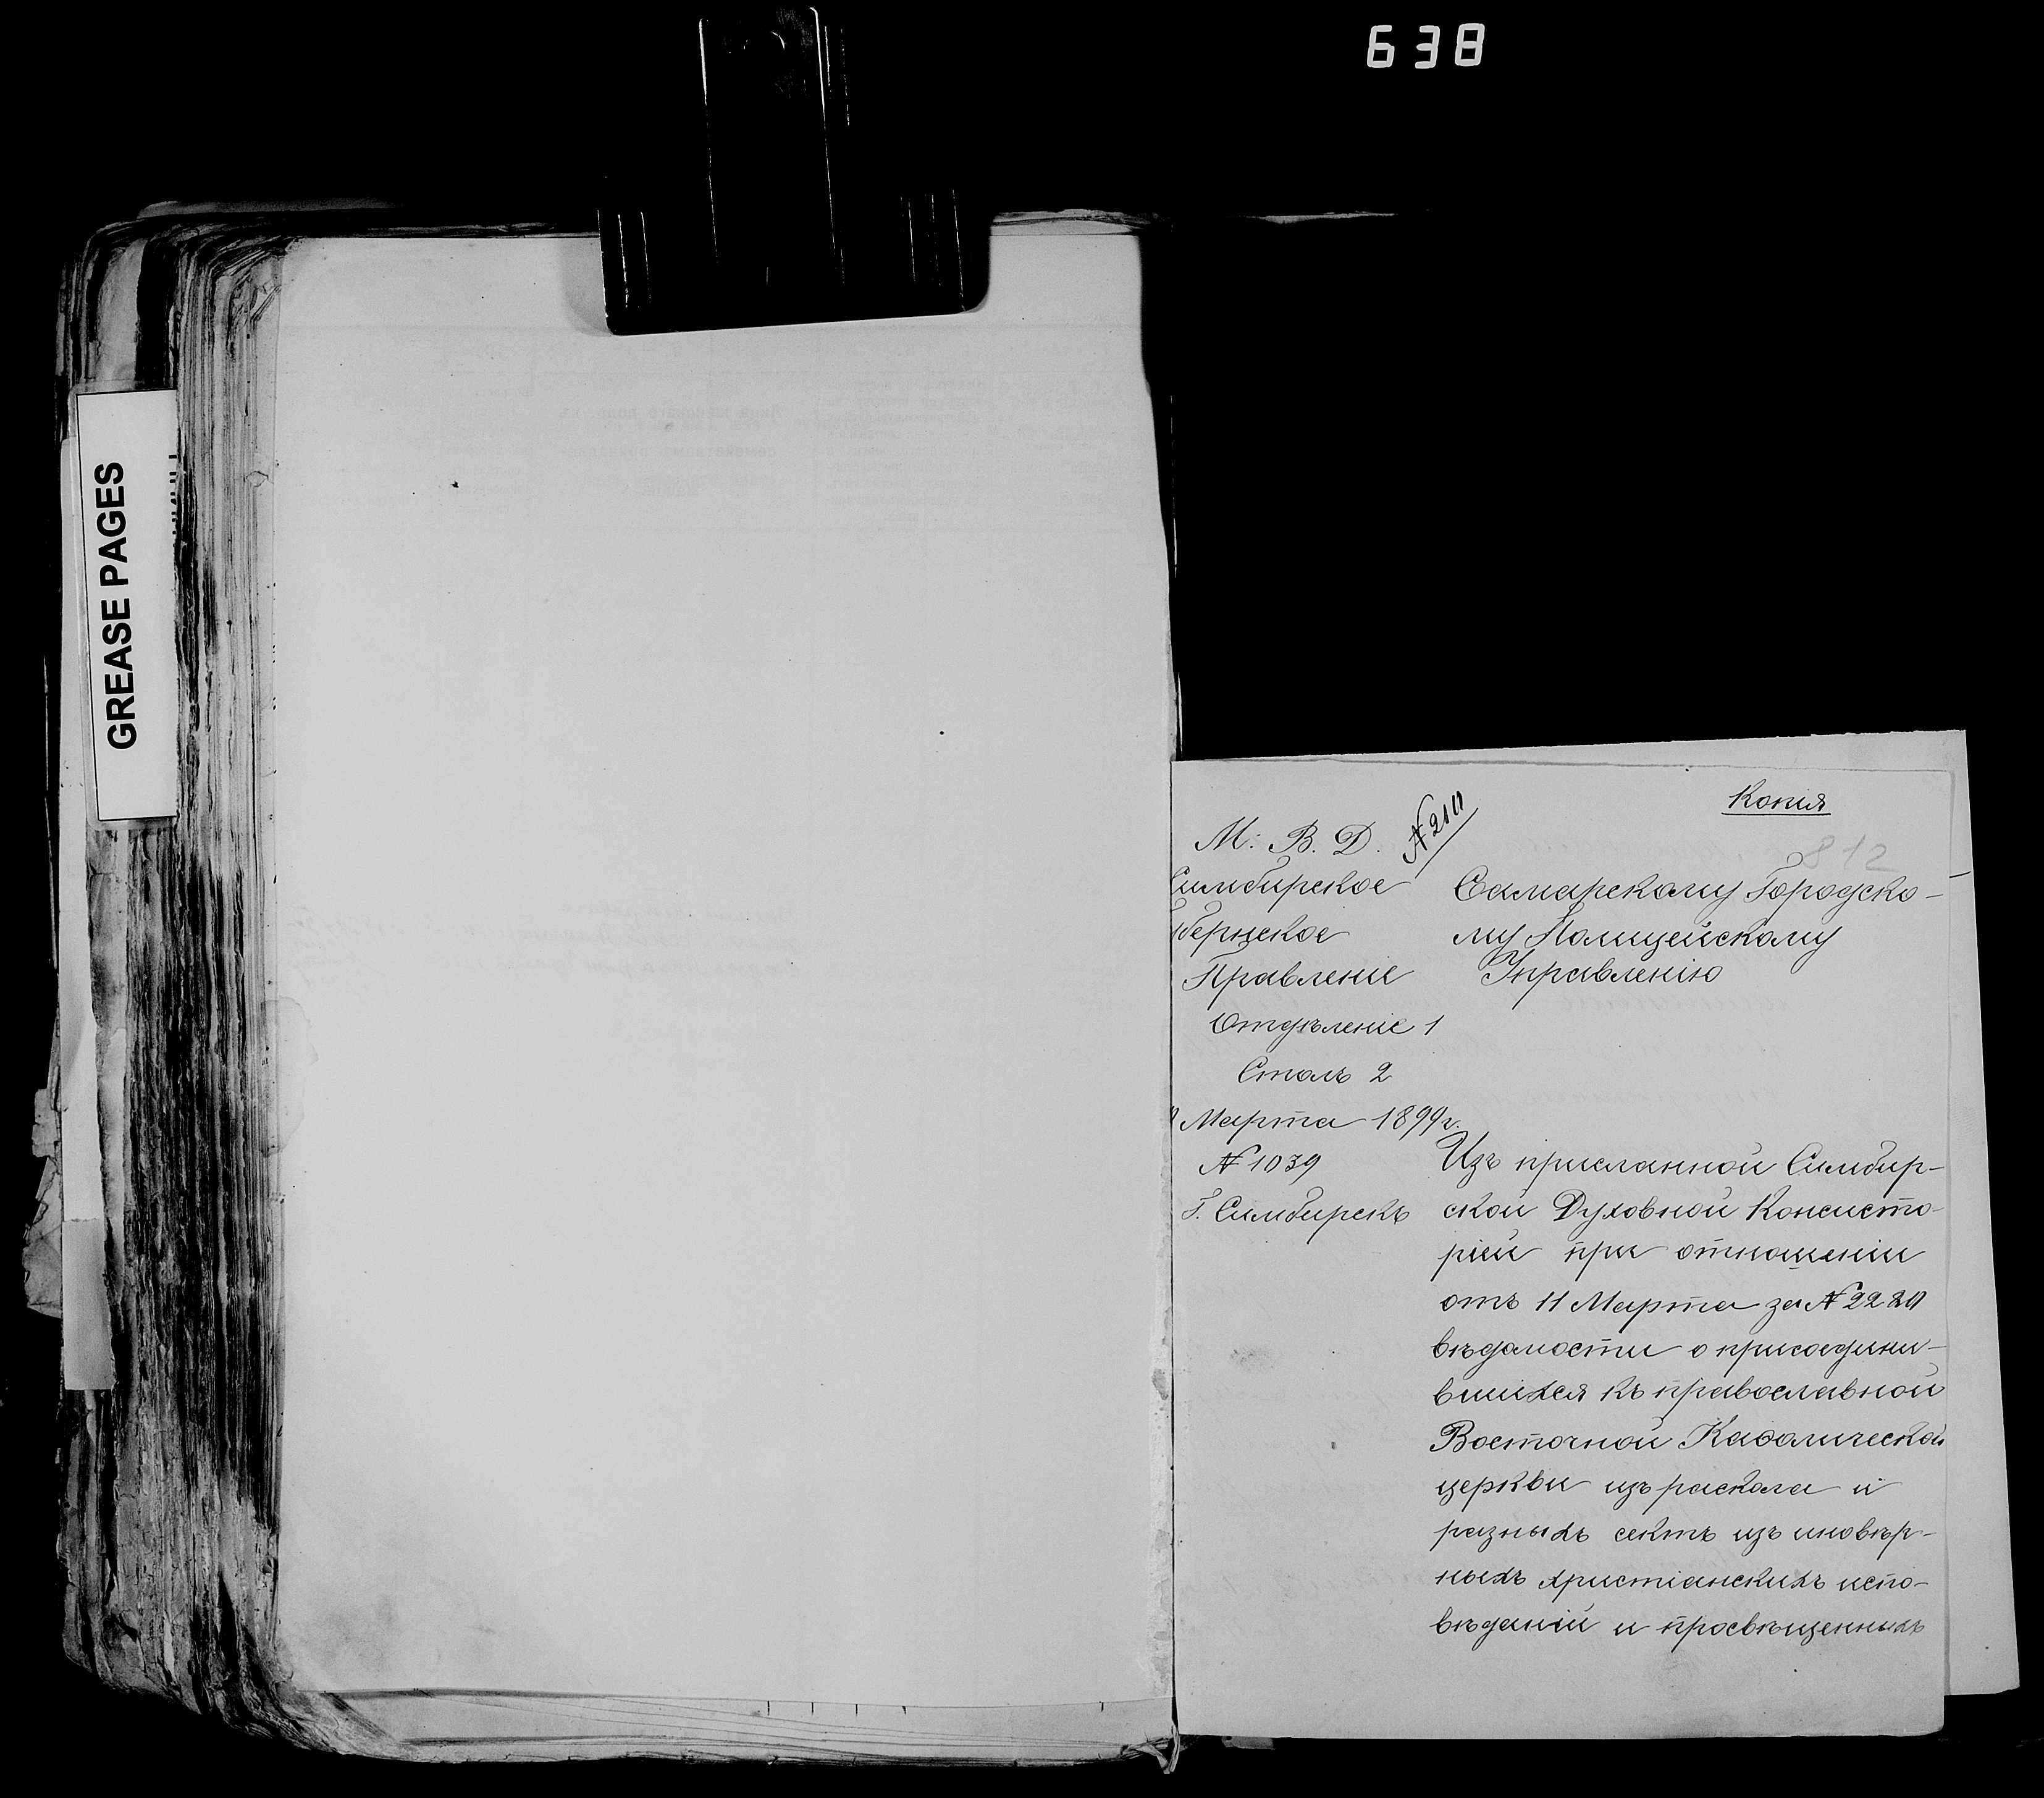 638
GREASE PAGES
Копія
812
М: В. Д.
Симбирское
бернское
Правленіе
Отдѣленіе 1
Столъ 2
Марта 1899 г.
№ 1039
Г. Симбирскъ
Самарскому Городско-
му Полицейскому
Управленію
Изъ присланной Симбир-
ской Духовной Консисто-
ріей при отношеніи
отъ 11 Марта за №
вѣдомости о присоедини-
вшихся къ православной
Восточной Каѳолической
церкви изъ раскола и
разныхъ сектъ изъ иновѣр-
ныхъ христіанскихъ испо-
вѣданій и просвѣщенныхъ